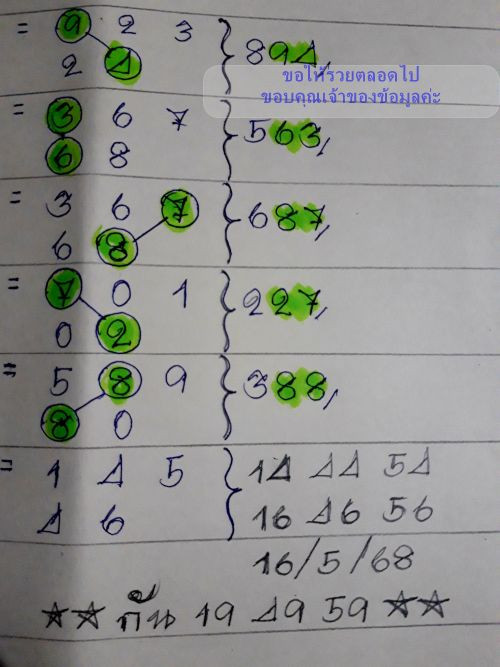 = 9 2 3
2 4 } 894,
ขอให้รวยตลอดไป
ขอบคุณเจ้าของข้อมูลค่ะ
= 3 6 7
6 8 } 563,
= 3 6 7
6 8 } 687,
= 7 0 1
0 2 } 227,
= 5 8 9
8 0 } 388,
= 1 4 5 } 14 44 54
4 6 16 46 56
16/5/68
☆☆ กั้น 19 49 59 ☆☆